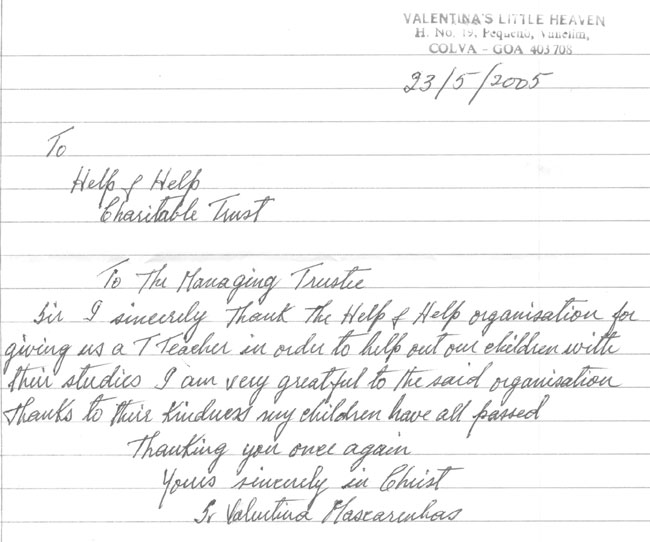 VALENTINA'S LITTLE HEAVEN
H. No. 19, Pequeno, Vanelim,
COLVA - GOA 403 708
23/5/2005
To
Help & Help
Charitable Trust
To The Managing Trustee
Sir I sincerely Thank The Help & Help organisation for
giving us a T Teacher in order to help out our children with
their studies I am very greatful to the said organisation
Thanks to their Kindness my children have all passed
Thanking you once again
Yours sincerely in Christ
Sr Valentina Mascarenhas